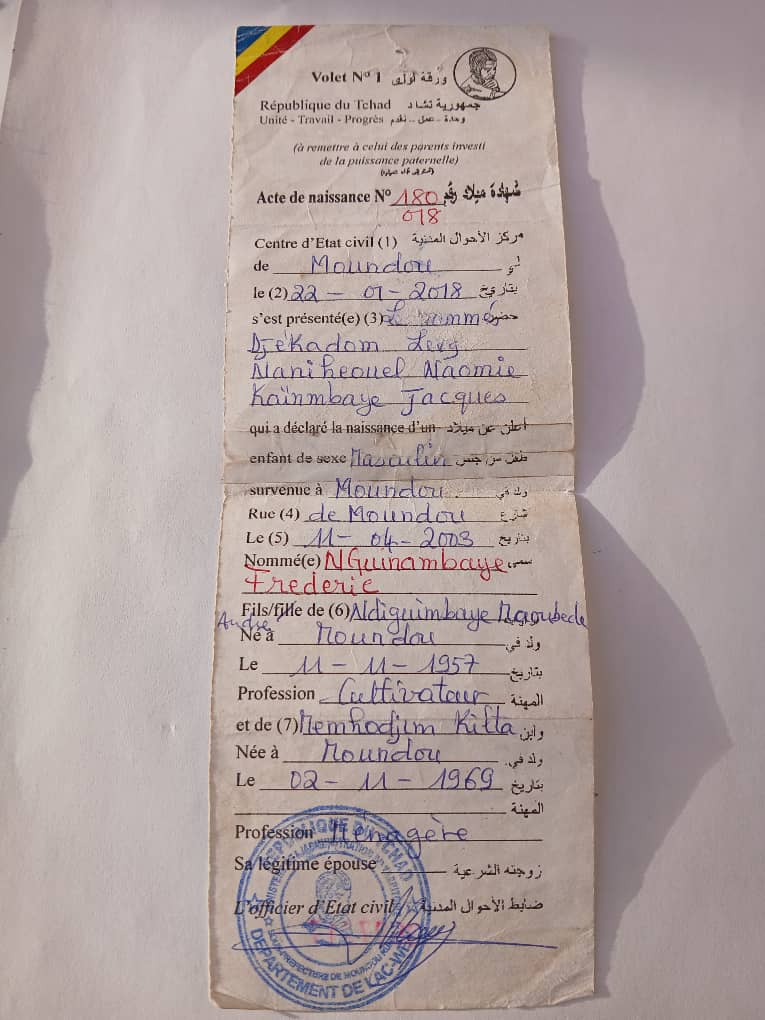 Volet N° 1 ورقة أولى
République du Tchad جمهورية تشاد
Unité - Travail - Progrès وحدة - عمل - تقدم
(à remettre à celui des parents investi
de la puissance paternelle)
Acte de naissance N° 180 شهادة ميلاد رقم
018
Centre d'Etat civil (1) مركز الأحوال المدنية
de Moundou في
le (2) 22 - 01 - 2018 بتاريخ
s'est présenté(e) (3) حضر
Djékadom Levy
Naniheouel Naomie
Kaïnmbaye Jacques
qui a déclaré la naissance d'un أعلن عن ميلاد
enfant de sexe Masculin طفل من جنس
survenue à Moundou ولد في
Rue (4) de Moundou شارع
Le (5) 11 - 04 - 2003 بتاريخ
Nommé(e) NGuinambaye سمي
Frederic
Fils/fille de (6) Ndiguimbaye Maoubede
André
Né à Moundou ولد في
Le 11 - 11 - 1957 بتاريخ
Profession Cultivateur المهنة
et de (7) Memhodjim Kilta وابن
Née à Moundou ولد في
Le 02 - 11 - 1969 بتاريخ
المهنة
Profession Ménagère
Sa légitime épouse زوجته الشرعية
L'officier d'Etat civil ضابط الأحوال المدنية
REPUBLIQUE DU TCHAD
DEPARTEMENT DE LAC-WEY